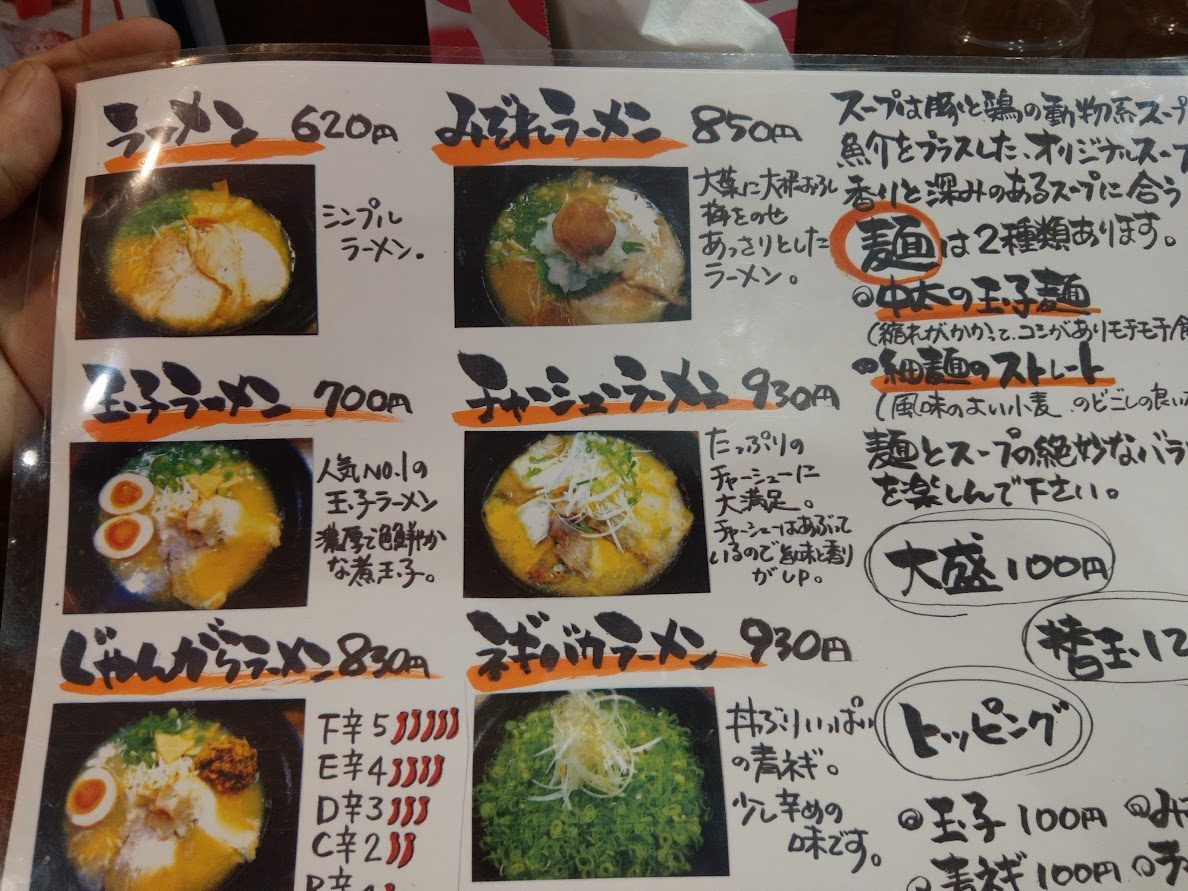 ラーメン 620円
シンプル
ラーメン。
みぞれラーメン 850円
大葉に大根おろし
梅をのせ
あっさりとした
ラーメン。
玉子ラーメン 700円
人気NO.1の
玉子ラーメン
濃厚で色鮮やか
な煮玉子。
チャーシューラーメン 930円
たっぷりの
チャーシューに
大満足。
チャーシューはあぶって
いるので旨味と香り
がUP。
じゃんがらラーメン 830円
F辛5
E辛4
D辛3
C辛2
ネギバカラーメン 930円
丼ぶりいっぱい
の青ネギ。
少し辛めの
味です。
スープは豚と鶏の動物系スープ
魚介をプラスした、オリジナルスープ
香りと深みのあるスープに合う
麺は2種類あります。
中太の玉子麺
(縮れがかかって、コシがありモチモチ食
細麺のストレート
(風味のよい小麦 のどごしの良い
麺とスープの絶妙なバラ
を楽しんで下さい。
大盛100円
替玉12
トッピング
玉子100円
青ネギ100円